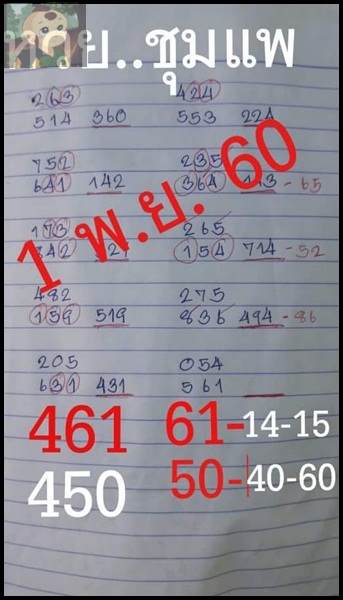 หวย..ชุมแพ
263 424
514 360 553 224
752 235
641 142 364 113-65
1 พ.ย. 60
173 265
342 154 714-52
482 275
159 519 836 494-86
205 054
631 431 561
461 61-14-15
450 50-40-60